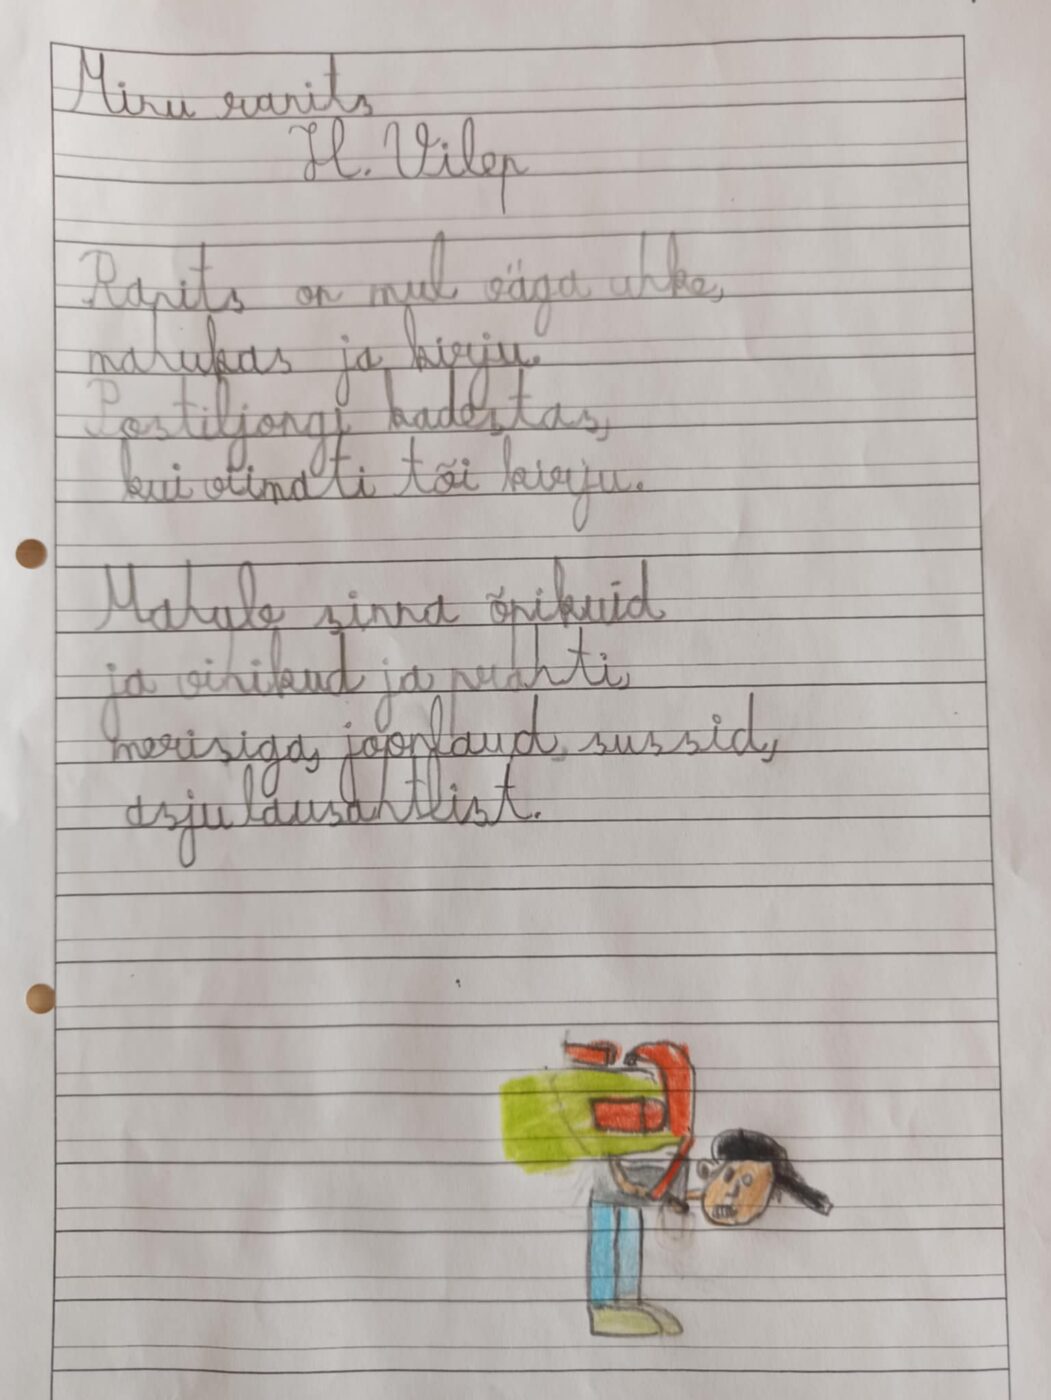 Minu ranits
H. Vilep
Ranits on mul väga uhke,
mahukas ja kirju.
Postiljongi kadestas,
kui viimati tõi kirju.
Mahub sinna õpikuid
ja vihikud ja prahti,
merisiga, joonlaud, sussid,
asju lausahtlist.